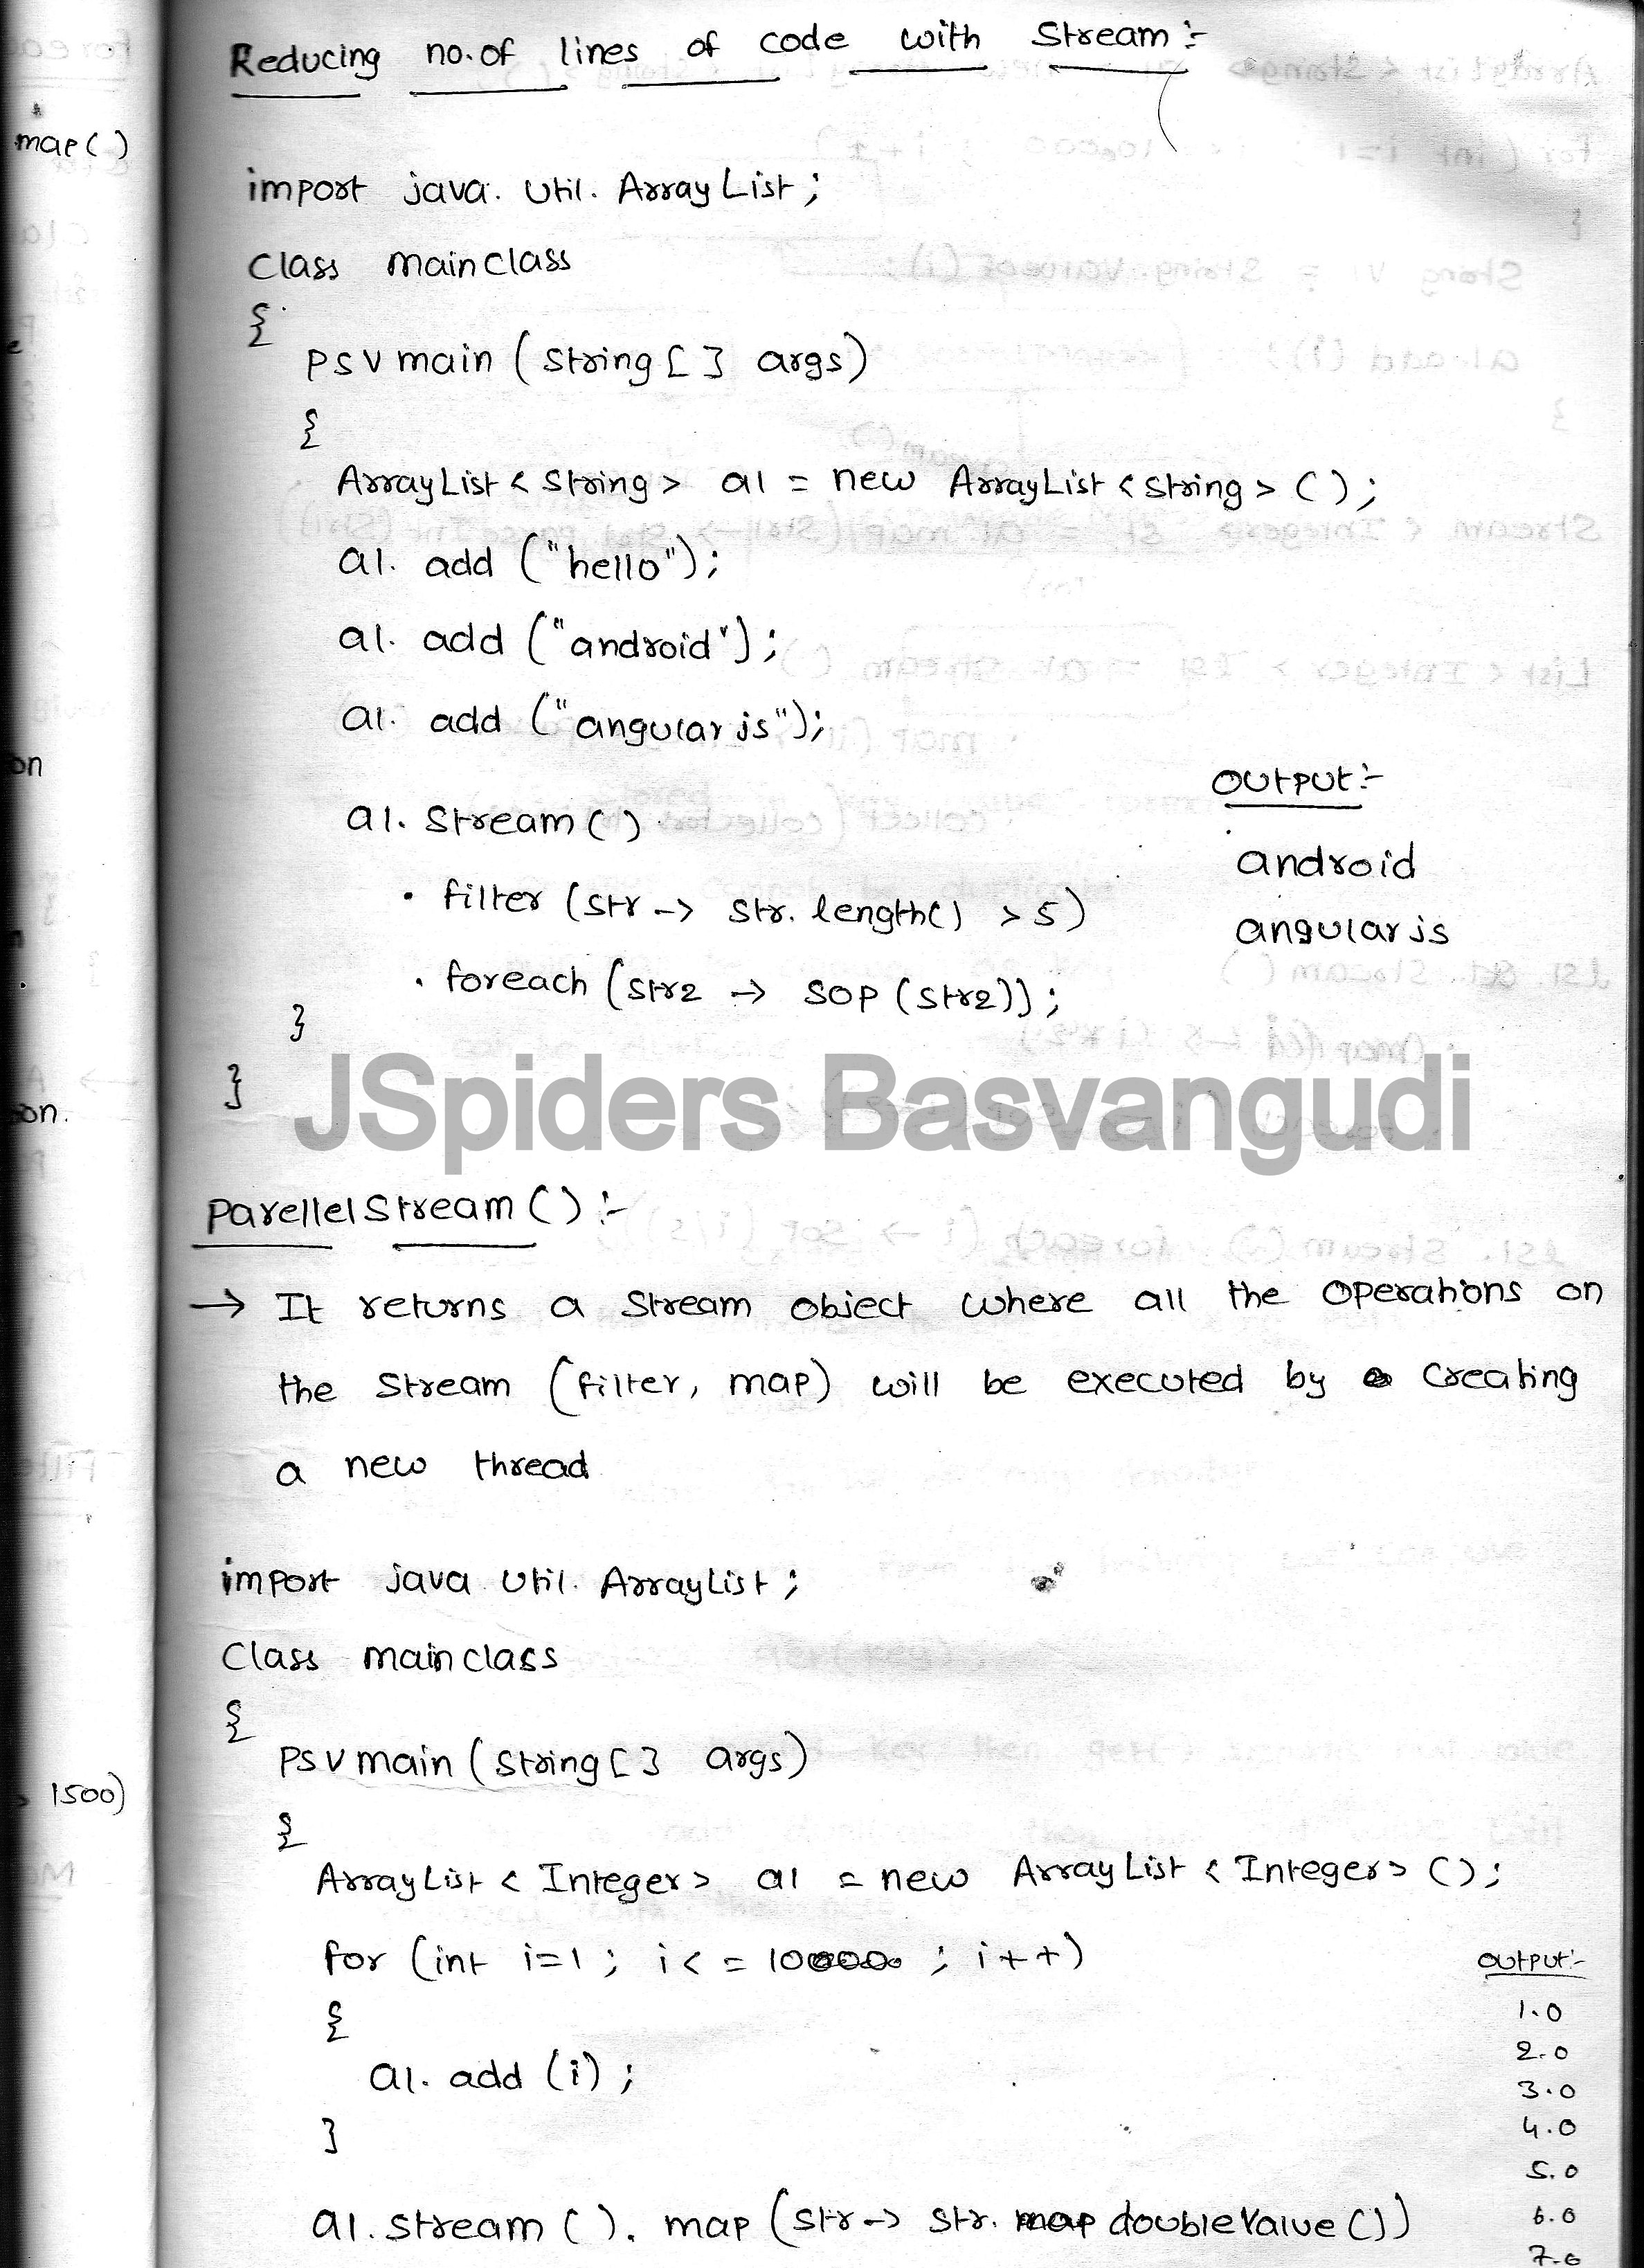 Reducing no.of lines of code with Stream :-
map()
import java. util. ArrayList;
class mainclass
{
psv main (String [ ] args)
{
ArrayList < String > al = new ArrayList < String > ( );
al. add ("hello");
al. add ("android");
al. add ("angular js");
on
output :-
al. Stream ( )
android
. filter (str -> str. length() > 5)
angular js
. foreach (str2 -> SOP (str2));
}
}
JSpiders Basvangudi
on.
ParellelStream ( ) :-
-> It returns a Stream object where all the operations on
the Stream (filter, map) will be executed by creating
a new thread
import java. util. ArrayList;
Class mainclass
{
psv main (String [ ] args)
1500)
{
ArrayList < Integer > al = new ArrayList < Integer > ( );
for (int i=1 ; i < = 10000 ; i++)
output:-
1.0
{
2.0
al. add (i) ;
3.0
}
4.0
5.0
al. stream ( ). map (str -> str. doubleValue ( ))
6.0
7.0